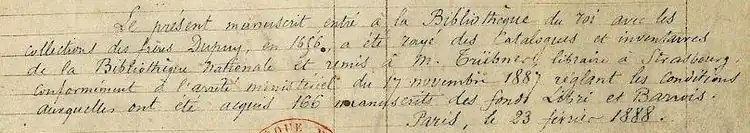 Le présent manuscrit entré à la Bibliothèque du roi avec les
collections des frères Dupuy, en 1656, a été rayé des Catalogues et inventaires
de la Bibliothèque Nationale et remis à M. Trübner, libraire à Strasbourg,
conformément à l'arrêté ministériel du 17 novembre 1887 réglant les conditions
auxquelles ont été acquis 166 manuscrits des fonds Libri et Barrois.
Paris, le 23 février 1888.